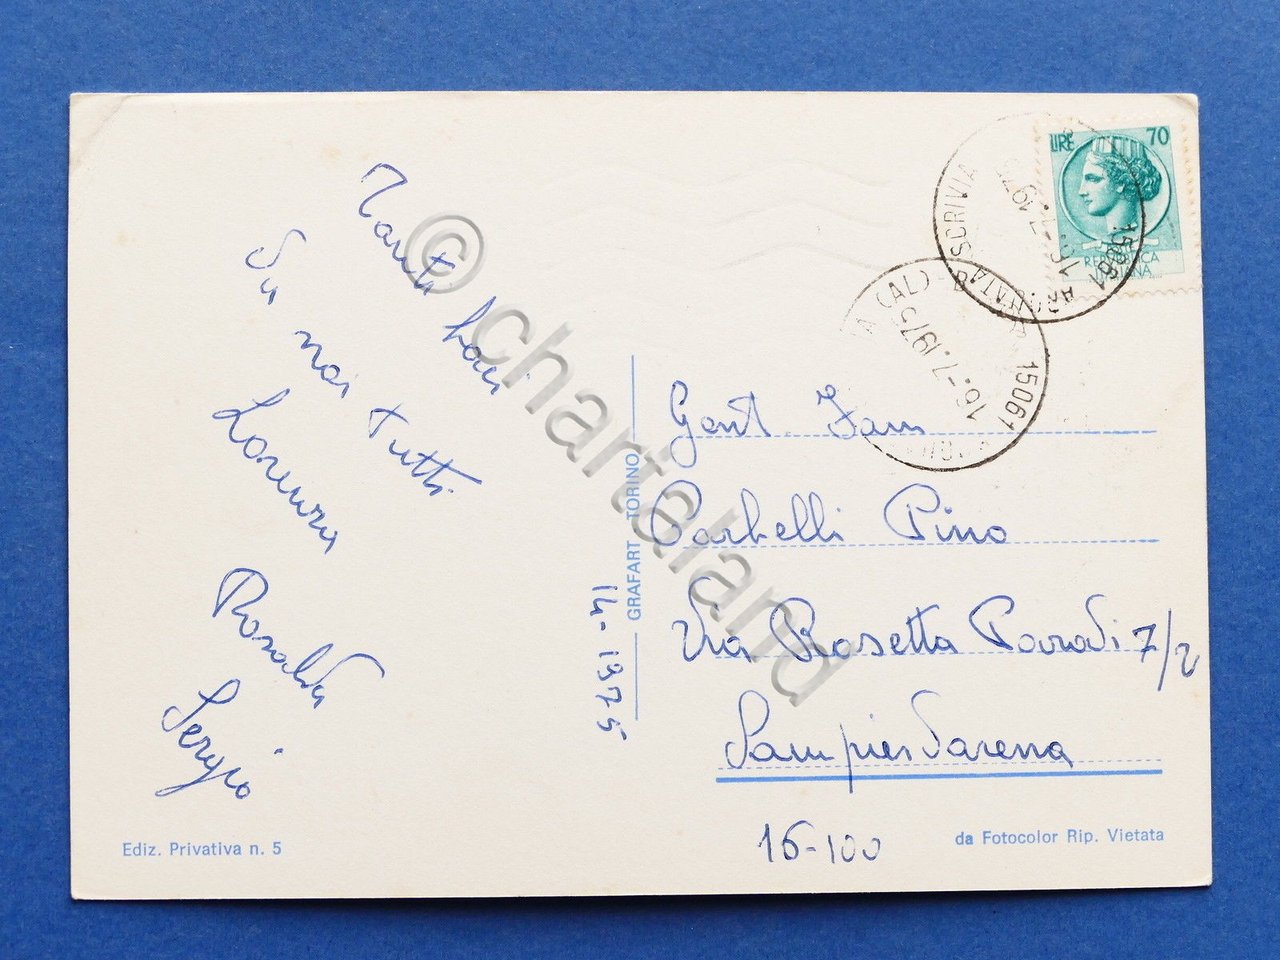 Tanti baci
Da noi tutti
Lorenza
Rosalda
Sergio
Ediz. Privativa n. 5
GRAFART - TORINO
14-1975
LIRE 70
REPUBBLICA
ITALIANA
15061 ARQUATA SCRIVIA
16.-7.1975
15061
A (AL)
16.-7.1975
Gent. Fam
Carbelli Pino
Via Rosetta Parodi 7/2
Sampierdarena
16-100
da Fotocolor Rip. Vietata
© chartaland